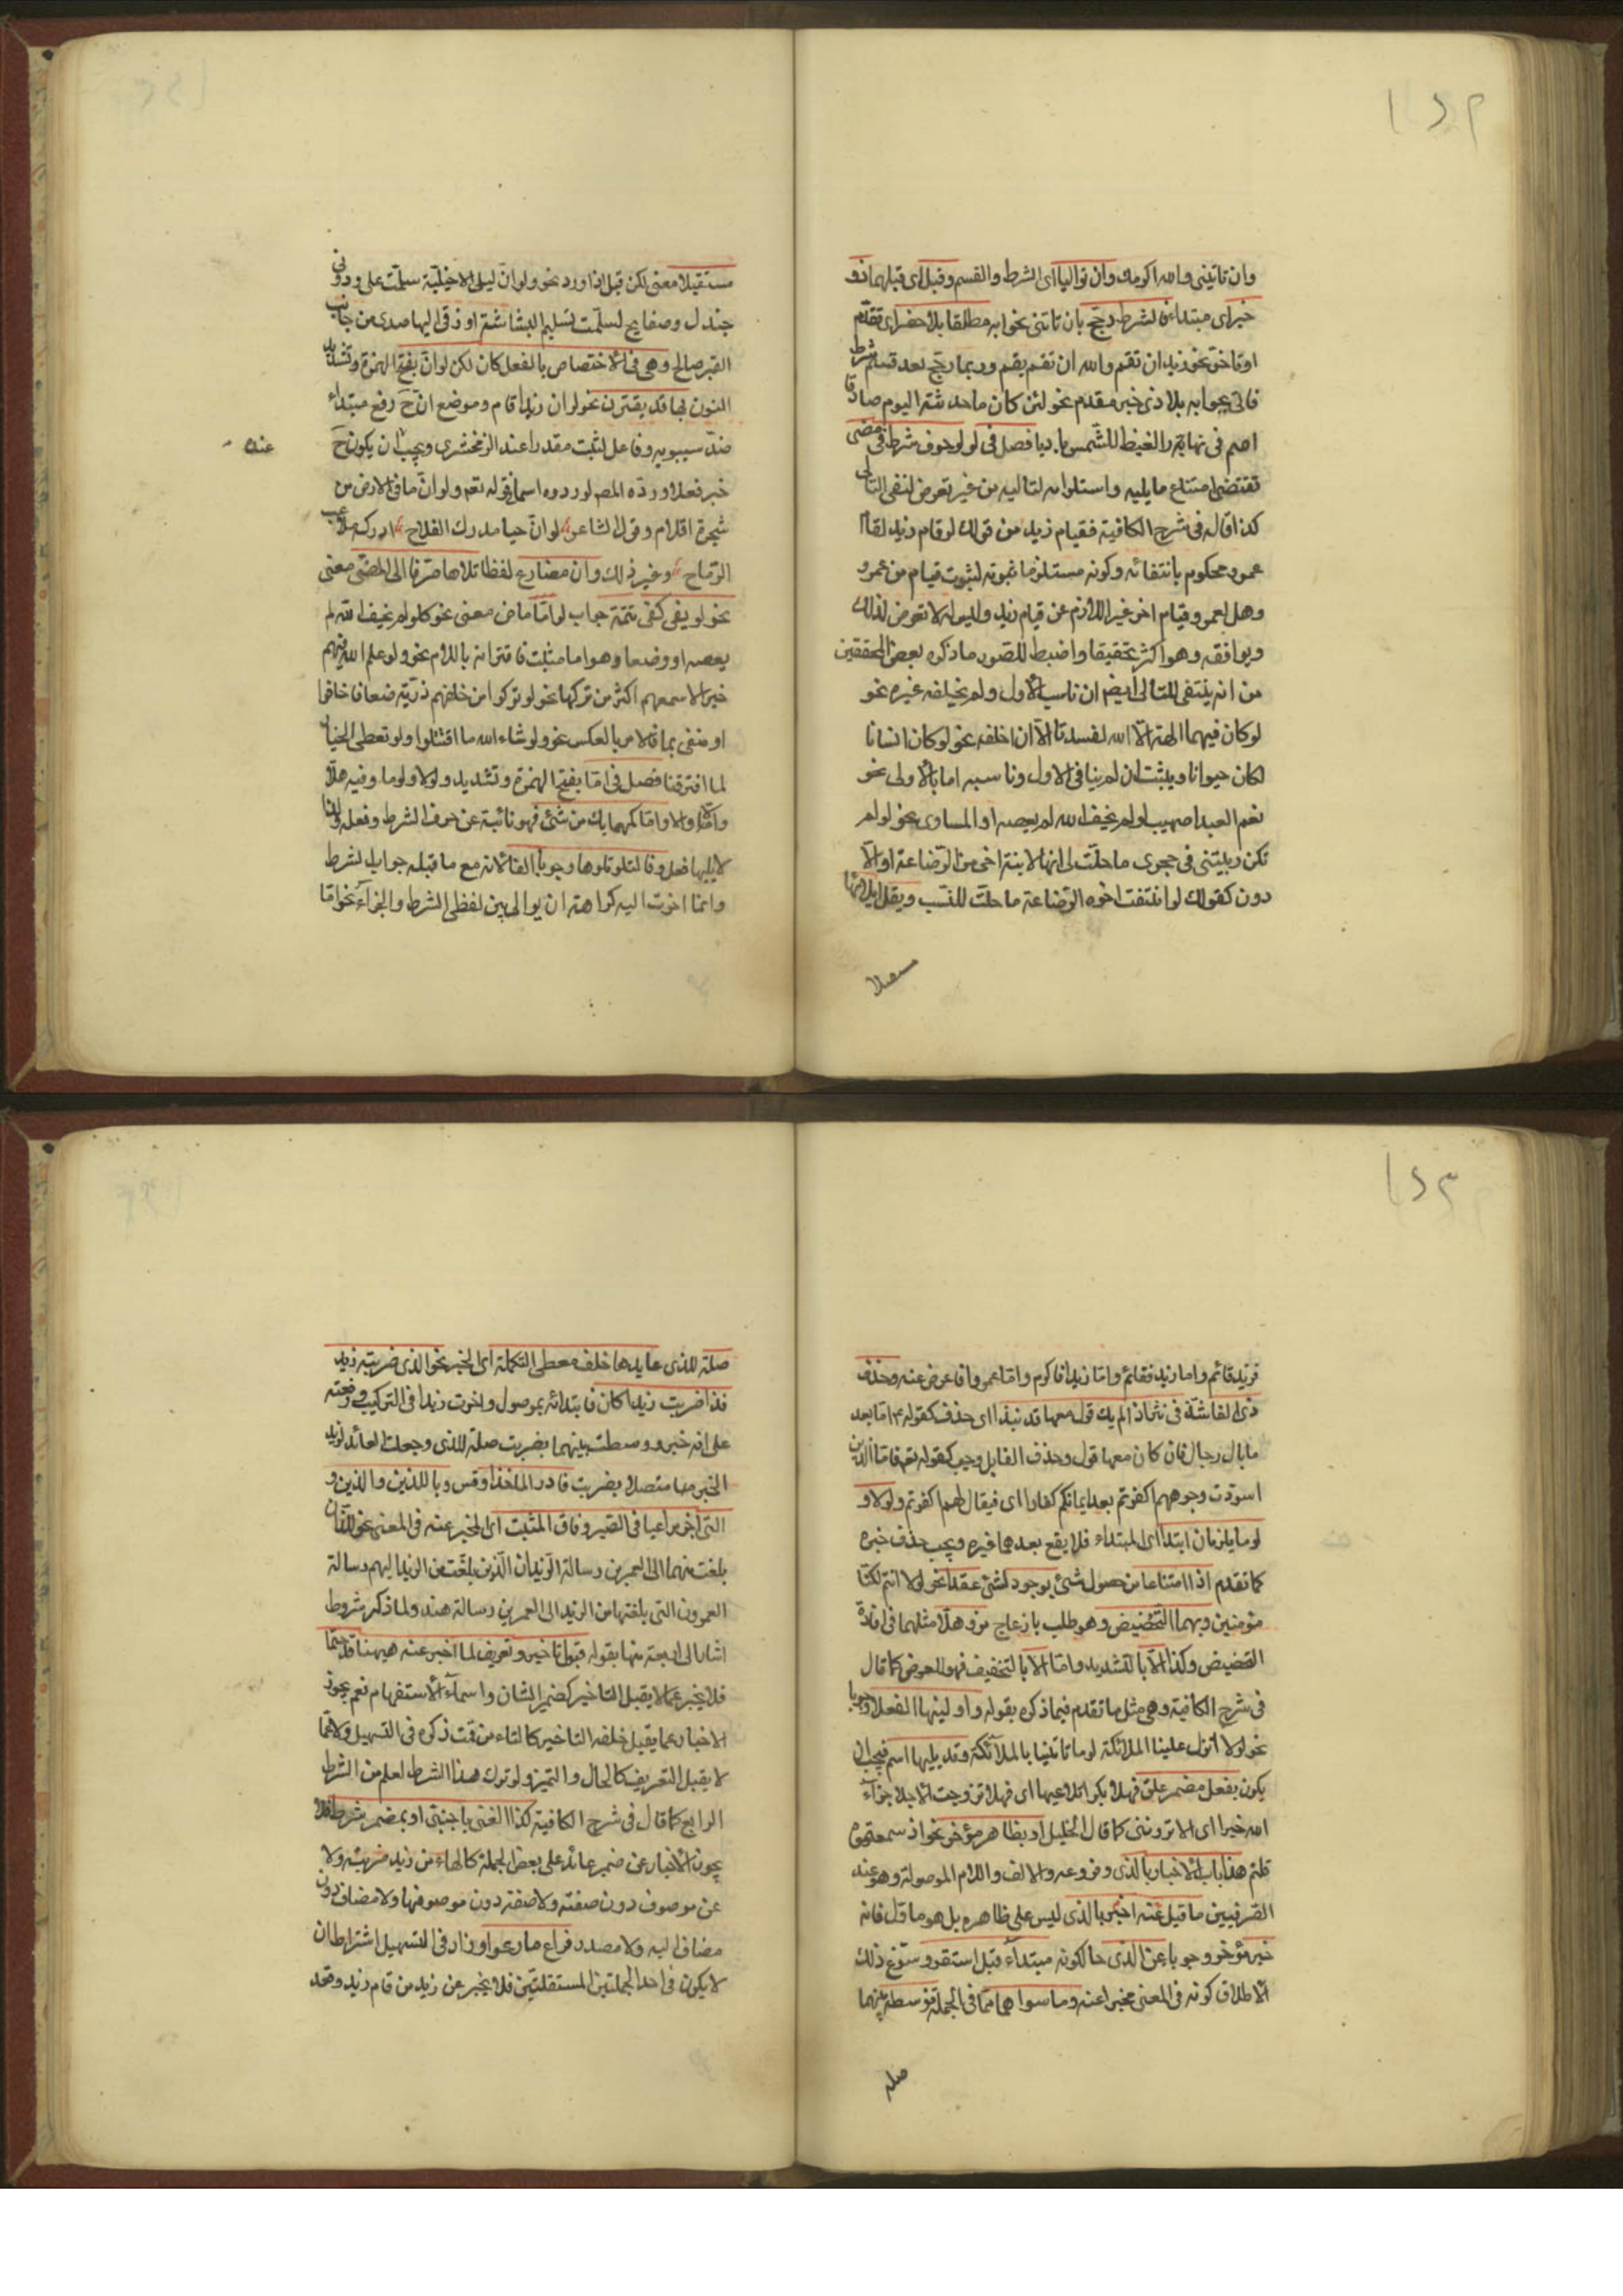 ١٥٢
وان تاتينى والله اكرمك وان تواليا اى الشرط والقسم وقبل اى قبلهما ذو
خبر اى مبتداء فالشرط رجّح بان تاتى بجوابه مطلقا بلا حذر اى تقدّم
او تاخّر نحو زيد ان تقم والله ان تقم يقم وربما رجّح بعد قسم شرط
فاتى بجوابه بلا ذى خبر مقدم نحو لئن كان ما حدثته اليوم صادقا
اصم فى نهار القيظ للشّمس باديا فصل فى لو لو حرف شرط فى مضى
تقتضى امتناع ما يليه واستلزامه لتاليه من غير تعرض لنفى التالى
كذا قاله فى شرح الكافية فقيام زيد من قولك لو قام زيد لقام
عمرو محكوم بانتفائه وكونه مستلزما ثبوته لثبوت قيام من عمرو
وهل لعمرو قيام اخر غير اللازم عن قيام زيد وليس له لا تعرض لذلك
ويوافقه وهو اكثر تحقيقا واضبط للصور ما ذكره بعض المحققين
من انه ينتفى التالى ايضم ان ناسب الاول ولم يخلفه غيره نحو
لو كان فيهما الهة الّا الله لفسدتا لا ان اخلفه نحو لو كان انسانا
لكان حيوانا ويثبت ان لم ينافى الاول وناسبه اما بالاولى نحو
نعم العبد صهيب لو لم يخف الله لم يعصه او المساوى نحو لو لم
تكن ربيبتى فى حجرى ما حلّت لى انها لابنة اخى من الرّضاعة او الا
دون كقولك لو انتفت اخوه الرّضاعة ما حلت للنّسب ويقلّ ايلائها
مستقبلا
مستقبلا معنى لكن قبل اذا ورد نحو ولو انّ ليلى الاخيليّة سلّمت على ودونى
جندل وصفايح لسلّمت تسليم البشاشة او زقى اليها صدى من جانب
القبر صالح وهى فى الاختصاص بالفعل كان لكن لو انّ بفتح الهمزة وتشديد
النون بها قد يقترن نحو لو ان زيدا قام وموضع انّ ح رفع مبتداء
عند سيبويه وفاعل لثبت مقدرا عند الزمخشرى ويجب ان يكون ح
عنده
خبر فعلا وردّه المص لوروده اسما فى قوله تعم ولو انّ ما فى الارض من
شجرة اقلام وقول الشاعر لو انّ حيا مدرك الفلاح ادركه ملاعب
الرّماح وغير ذلك وان مضارع لفظا تلاها صرّفا الى المضىّ معنى
نحو لو يفى كفى تتمّة جواب لو امّا ماض معنى نحو كلو لم يخف الله لم
يعصه او وضعا وهو اما مثبت فاقترانه باللام نحو ولو علم الله فيهم
خيرا لاسمعهم اكثر من تركها نحو لو تركوا من خلفهم ذرّيّة ضعافا خافوا
او منفى بما فالامر بالعكس نحو ولو شاء الله ما اقتتلوا ولو نعطى الخيار
لما افترقنا فصل فى امّا بفتح الهمزة وتشديد ولولا ولوما وفيه هلّا
والّا والا وامّا كمهما يك من شئ فهو نائبة عن حرف الشرط وفعله ولهذا
لا يليها فعل وفا لتلو تلوها وجوبا الفا لانّه مع ما قبله جواب الشرط
وانما اخرت اليه كراهة ان يوالى بين لفظى الشرط والجزاء نحو امّا
١٥٣
فزيد قائم واما زيد فقائم وامّا زيدا فاكرم وامّا عمروا فاعرض عنه وحذف
ذى الفا شذّ فى نثر اذا لم يك قول معها قد نبذا اى حذف كقوله ع امّا بعد
ما بال رجال فان كان معها قول وحذف الفا بل وجب كقوله تعم فامّا الّذين
اسودّت وجوههم اكفرتم بعد ايمانكم كفارا اى فيقال لهم اكفرتم ولولا و
لوما يلزمان ابتدا اى المبتداء فلا يقع بعدهما غيره ويجب حذف خبره
كما تقدم اذا امتناعا من حصول شئ بوجود لشئ عقدا نحو لولا انتم لكنّا
مؤمنين وبهما التّخضيض وهو طلب بازعاج مز وهلّا مثلهما فى افادة
التخضيض وكذا الّا بالتشديد وامّا الا بالتخفيف فهو للعرض كما قال
فى شرح الكافية وهى مثل ما تقدم فيما ذكره بقوله واولينها الفعلا وجوبا
نحو لولا انزل علينا الملائكة لوما تاتينا بالملائكة وقد يليها اسم فيجب ان
يكون بفعل مضمر علق فهلا بكرا تلاعبها اى فهلا تزوجت الا رجلا جزاء
الله خيرا اى الا تروننى كما قال الخليل او بظاهر مؤخر نحو اذ سمعتموه
قلتم هذا باب الاخبار بالّذى وفروعه والالف واللام الموصولة وهو عند
التصرفيين ما قيل عنه اخبر بالذى ليس على ظاهره بل هو ماوّل فانه
خبر مؤخر وجوبا عن الّذى حالكونه مبتداء قبل استقر وسوّغ ذلك
الاطلاق كونه فى المعنى مخبرا عنه وما سواهما مما فى الجملة فوسطه بينهما
صلة
صلة للذى عايدها خلف معطى التكملة اى الخبر نحو الذى ضربته زيد
فذا ضربت زيدا كان فابتدائه بموصول واخرت زيدا فى التركيب ورفعته
على انه خبر ووسطت بينهما بضربت صلة للذى وجعلت العائد لزيد
الخبر بها متصلا بضربت فادر المأخذا وقس وباللذين والذين و
التى اخبر مراعيا فى الضمير وفاق المثبت اى المخبر عنه فى المعنى نحو اللذان
بلغت منهما الى العمرين رسالة الزيدان الّذين بلّغت من الزيد اليهم رسالة
العمرون التى بلغتها من الزيد الى العمرين رسالة هند ولما ذكر شروط
اشار الى اربعة منها بقوله قبول تاخير وتعريف لما اخبر عنه هيهنا قد حتما
فلا يخبر عما لا يقبل التاخير كضمير الشان واسماء الاستفهام نعم يجوز
الاخبار عما يقبل خلفه التاخير كالتاء من قمت ذكره فى التسهيل ولا عمّا
لا يقبل التعريف كالحال والتميز ولو ترك هذا الشرط لعلم من الشرط
الرابع كما قال فى شرح الكافية كذا الغنى باجنبى او بمضمر شرط فلا
يجوز الاخبار عن ضمير عائد على بعض الجملة كالهاء من زيد ضربته ولا
عن موصوف دون صفته ولا صفة دون موصوفها ولا مضاف دون
مضاف اليه ولا مصدر فراع ما رعوا وزاد فى التسهيل اشتراط ان
لا يكون فى احد الجملتين المستقلتين فلا يخبر عن زيد من قام زيد وقعد